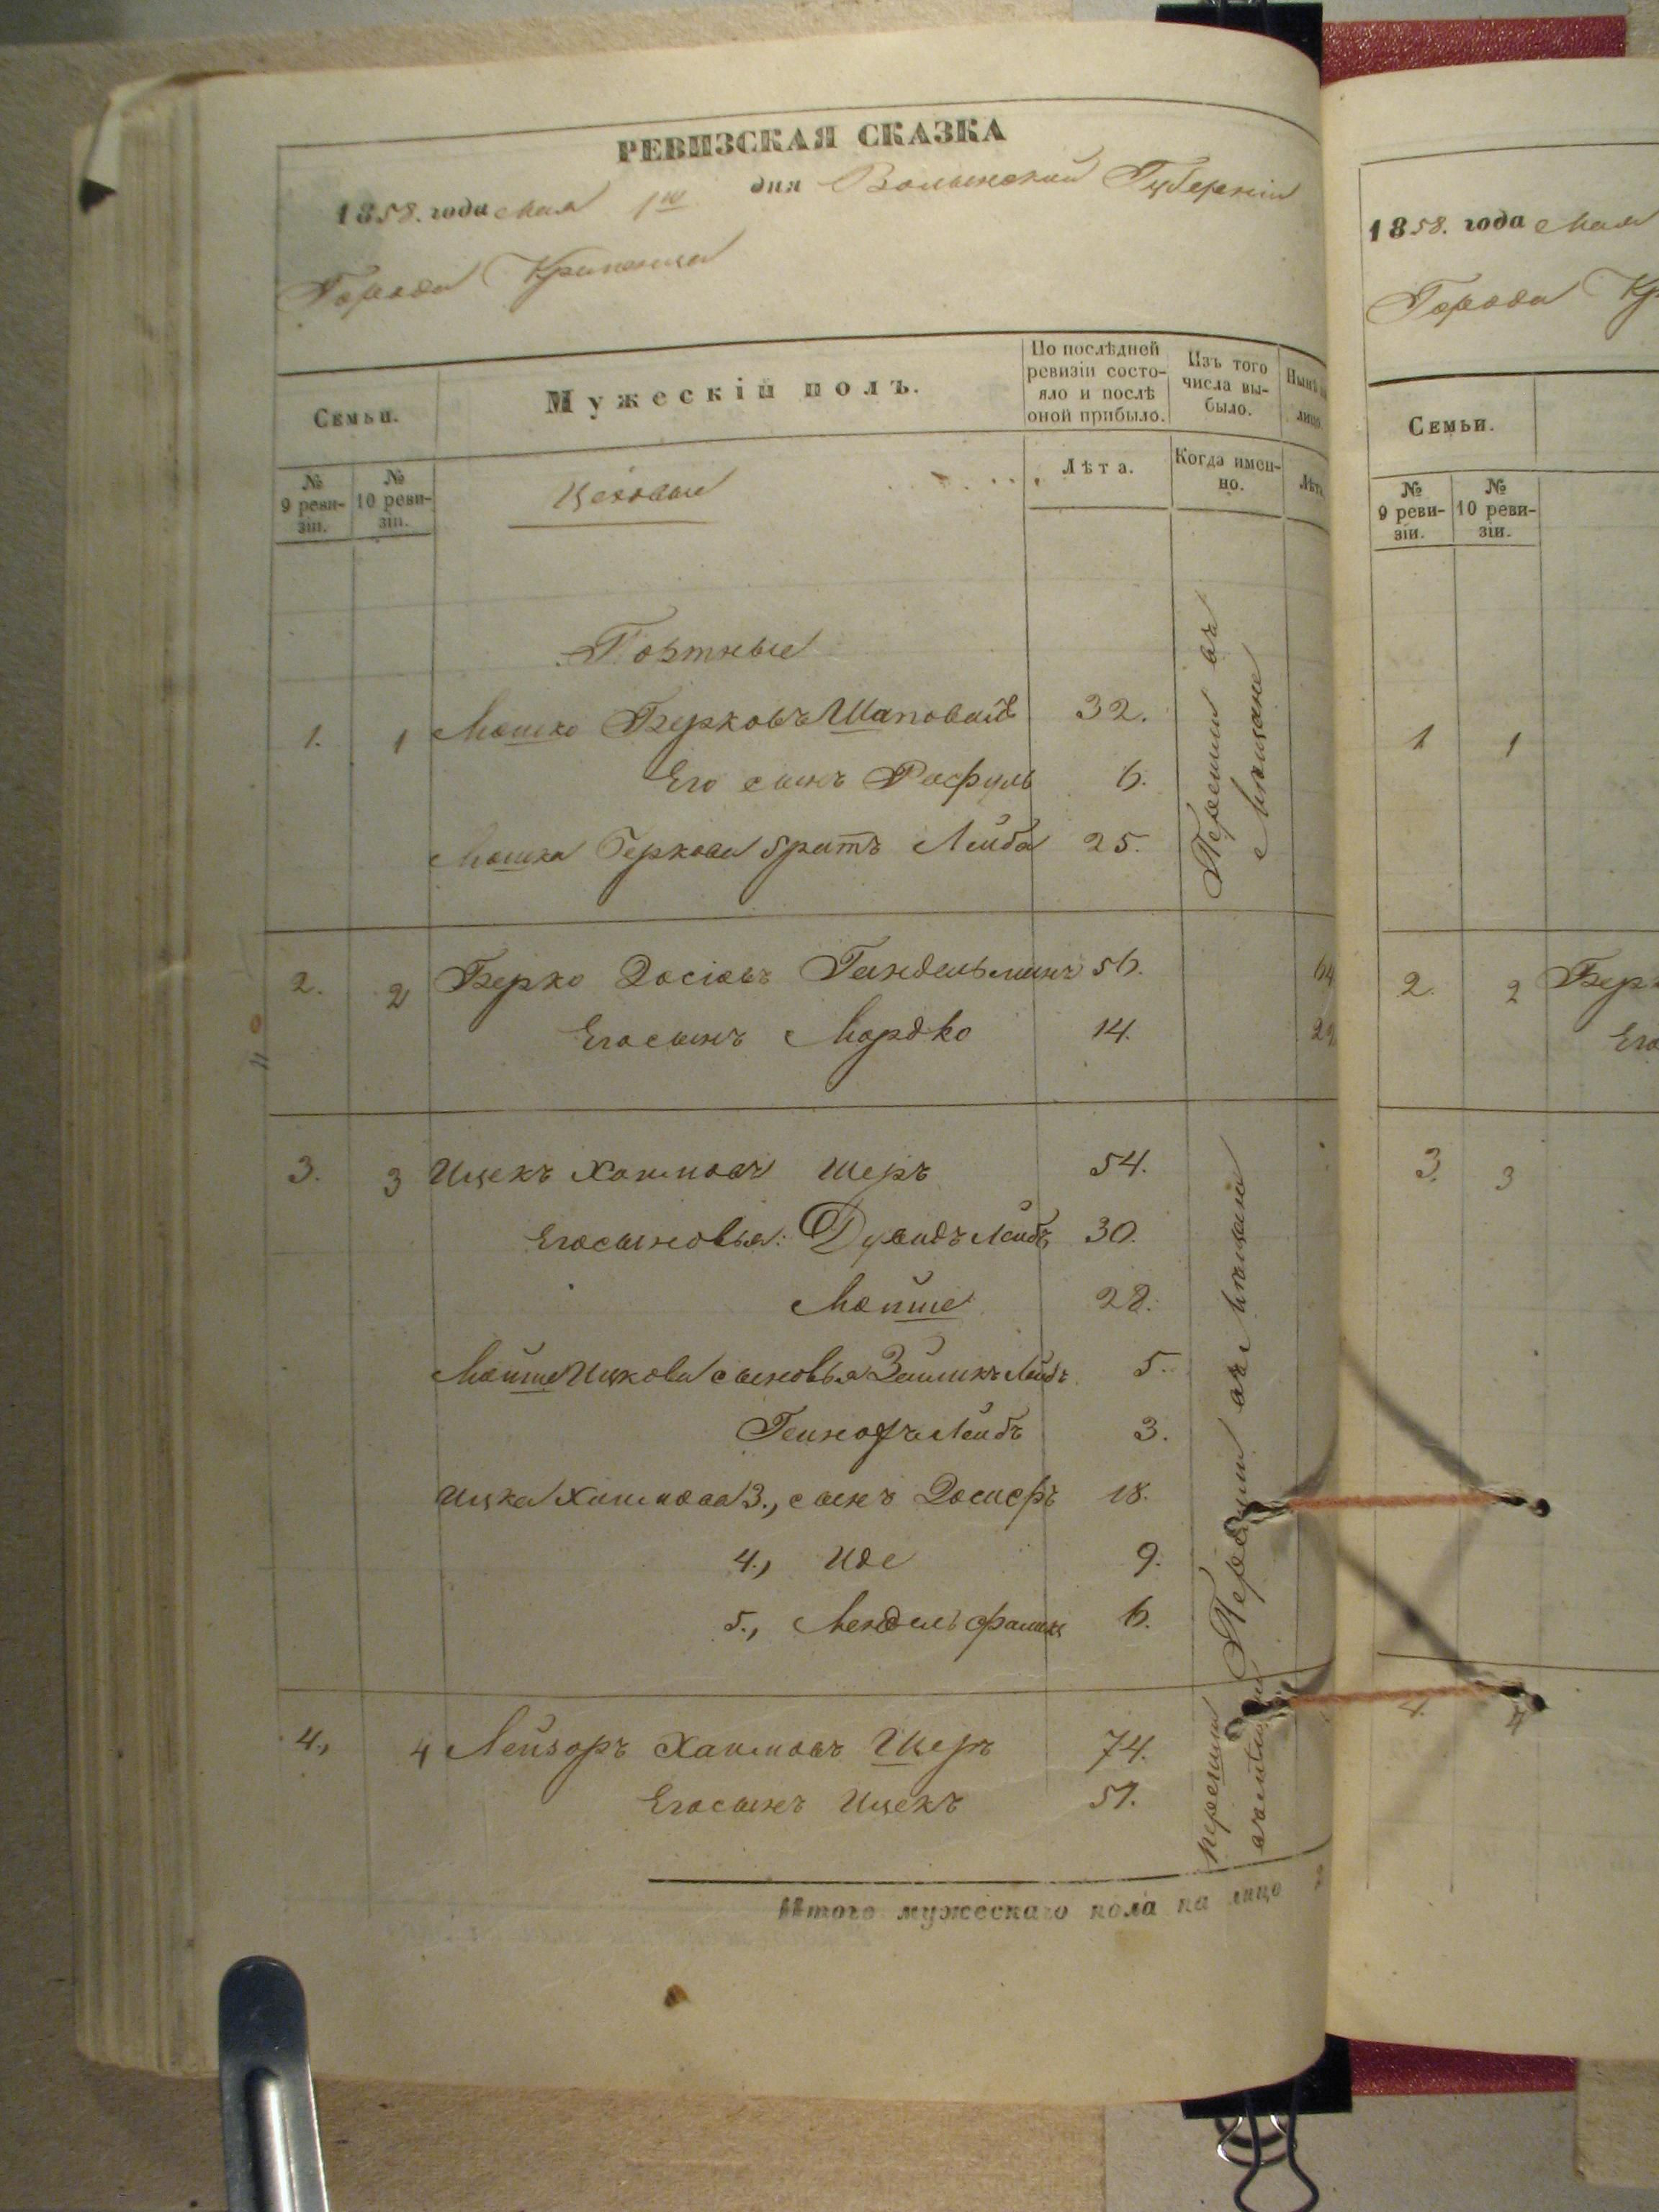 РЕВИЗСКАЯ СКАЗКА
1858. года Мая 1го дня Волынской Губерніи
Города Кременца
Семьи.
Мужескій полъ.
По послѣдней ревизіи состояло и послѣ оной прибыло.
Изъ того числа выбыло.
Нынѣ на лицо.
№ 9 ревизіи.
№ 10 ревизіи.
Цеховые
Лѣта.
Когда именно.
Лѣта
Портные
1. 1 Мошко Берковъ Шаповалъ 32.
Его сынъ Рафуль 6.
Мошка Беркова братъ Лейба 25.
Перешли въ Мѣщане
2. 2 Берко Іосіовъ Гандельманъ 56. 64
Его сынъ Мордко 14. 22
3. 3 Ицекъ Хаимовъ Шеръ 54.
Его сыновья: Дувидъ Лейбъ 30.
Мойше 28.
Мойше Ицкова сыновья Лейбъ 5.
Лейбъ 3.
Ицка Хаимова 3., сынъ Іосифъ 18.
4., Иде 9.
5., Мендель 6.
Перешли въ Мѣщане
4., 4 Лейзоръ Хаимовъ Шеръ 74.
Его сынъ Ицекъ 51.
перешли въ мѣщане
Итого мужескаго пола на лицо
1858. года Мая
Города Кр
Семьи.
№ 9 ревизіи.
№ 10 ревизіи.
1 1
2. 2 Берк
Его
3. 3
4. 4